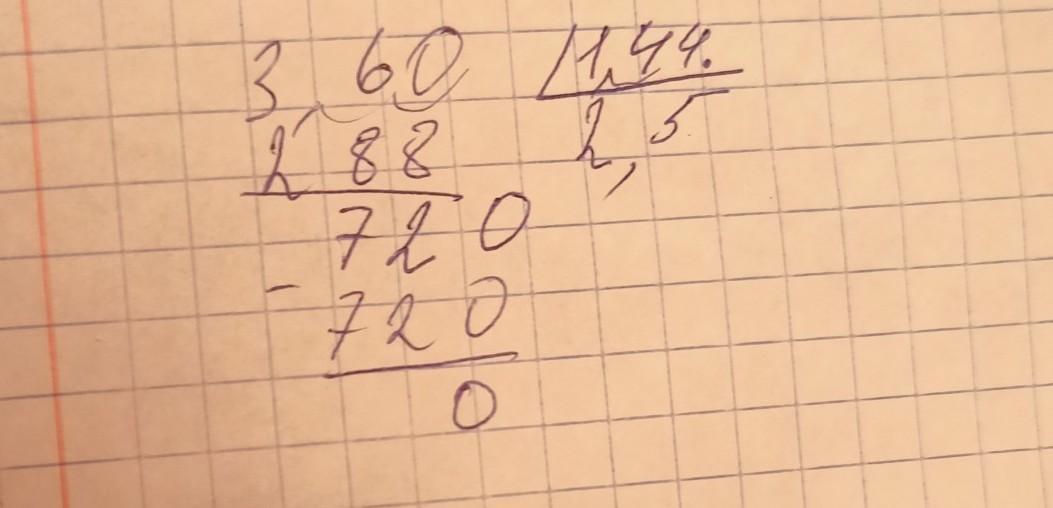 3,60 | 1,44.
288 2,5
720
- 720
0